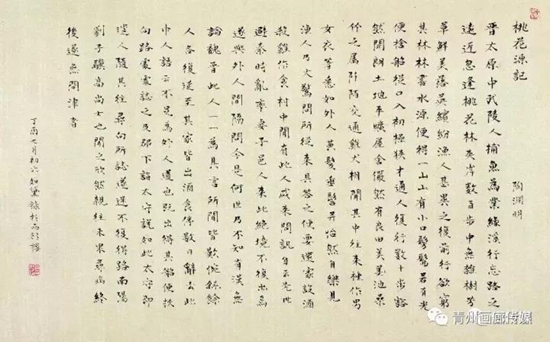 桃花源記
陶淵明
晉太原中武陵人捕魚為業緣溪行忘路之
遠近忽逢桃花林夾岸數百步中無雜樹芳
草鮮美落英繽紛漁人甚異之復前行欲窮
其林林盡水源便得一山山有小口髣髴若有光
便捨船從口入初極狹才通人復行數十步豁
然開朗土地平曠屋舍儼然有良田美池桑
竹之屬阡陌交通雞犬相聞其中往來種作男
女衣著悉如外人黃髮垂髫並怡然自樂見
漁人乃大驚問所從來具答之便要還家設酒
殺雞作食村中聞有此人咸來問訊自云先世
避秦時亂率妻子邑人來此絕境不復出焉
遂與外人間隔問今是何世乃不知有漢無
論魏晉此人一一為具言所聞皆歎惋餘
人各復延至其家皆出酒食停數日辭去此
中人語云不足為外人道也既出得其船便扶
向路處處誌之及郡下詣太守說如此太守即
遣人隨其往尋向所誌遂迷不復得路南陽
劉子驥高尚士也聞之欣然親往未果尋病終
後遂無問津者
丁酉七月初六
青州画廊传媒